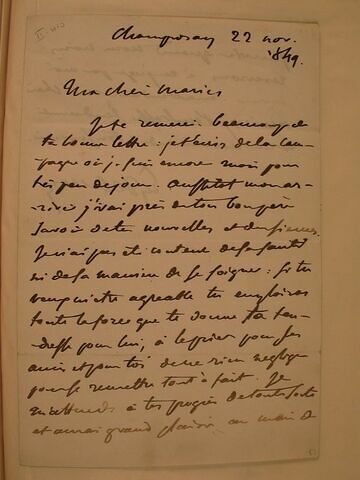 Champrosay 22 nov.
1849.
Mon cher Maurice
Je te remercie beaucoup de
ta bonne lettre : je t'écris de la cam-
pagne où je suis encore mais pour
très peu de jours. Aussitôt mon ar-
rivée j'irai près de ton bon père
savoir de tes nouvelles et des siennes.
Je n'ai pas été content de sa santé
ni de sa manière de se soigner : si tu
veux m'être agréable tu emploieras
toute la force que te donne ta ten-
dresse pour lui, à le prier pour ses
amis et pour toi de ne rien négliger
pour se remettre tout à fait. Je
m'attends à tes progrès de toute sorte
et aurai grand plaisir, au mois de